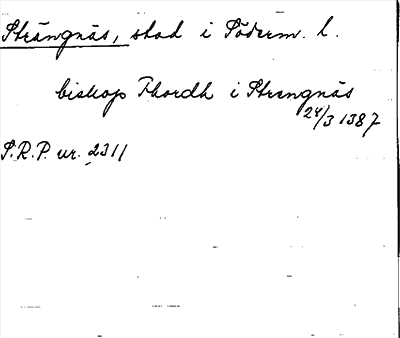 Strängnäs, stad i Söderm. l.
biskop Thordh i Strengnäs
24/3 1387
S.R.P. nr. 2311